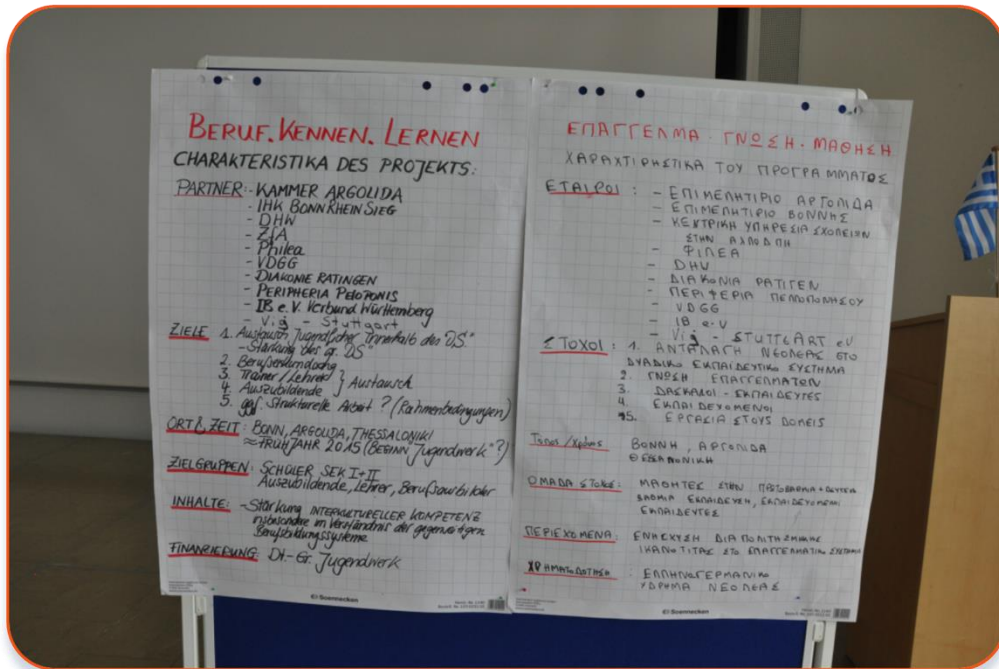 BERUF. KENNEN. LERNEN
CHARAKTERISTIKA DES PROJEKTS:
PARTNER: - KAMMER ARGOLIDA
- IHK BONN RHEIN SIEG
- DHW
- ZfA
- Philea
- VDGG
- DIAKONIE RATINGEN
- PERIPHERIA PELOPONIS
- IB e.V. Verbund Württemberg
- Vij - Stuttgart
ZIELE 1. Austausch Jugendlicher innerhalb des "DS"
- Stärkung des gr. "DS"
2. Berufserkundung
3. Trainer/Lehrer } Austausch
4. Auszubildende
5. ggf. Strukturelle Arbeit? (Rahmenbedingungen)
ORT & ZEIT: BONN, ARGOLIDA, THESSALONIKI
≈ FRÜHJAHR 2015 (BEGINN "Jugendwerk"?)
ZIELGRUPPEN: SCHÜLER SEK I+II
Auszubildende, Lehrer,
INHALTE: - Stärkung INTERKULTURELLER KOMPETENZ
insbesondere im Verständnis der gegenseitigen
Berufsbildungssysteme
FINANZIERUNG: Dt.-Gr. Jugendwerk
Soennecken
ΕΠΑΓΓΕΛΜΑ · ΓΝΩΣΗ · ΜΑΘΗΣΗ
ΧΑΡΑΧΤΙΡΗΣΤΙΚΑ ΤΟΥ ΠΡΟΓΡΑΜΜΑΤΟΣ
ΕΤΑΙΡΟΙ: - ΕΠΙΜΕΛΗΤΙΡΙΟ ΑΡΓΟΛΙΔΑ
- ΕΠΙΜΕΛΗΤΙΡΙΟ ΒΟΝΝΗΣ
- ΚΕΝΤΡΙΚΗ ΥΠΗΡΕΣΙΑ ΣΧΟΛΕΙΩΝ
ΣΤΗΝ
- ΦΙΛΕΑ
- DHW
- ΔΙΑΚΟΝΙΑ ΡΑΤΙΓΕΝ
- ΠΕΡΙΦΕΡΙΑ ΠΕΛΟΠΟΝΗΣΟΥ
- VDGG
- IB e.V
- Vij - STUTTGART eV
ΣΤΟΧΟΙ: 1. ΑΝΤΑΛΑΓΗ ΝΕΟΛΕΑΣ ΣΤΟ
ΔΥΑΔΙΚΟ ΕΚΠΑΙΔΕΥΤΙΚΟ ΣΥΣΤΗΜΑ
2. ΓΝΩΣΗ ΕΠΑΓΓΕΛΜΑΤΩΝ
3. ΔΑΣΚΑΛΟΙ - ΕΚΠΑΙΔΕΥΤΕΣ
4. ΕΚΠΑΙΔΕΥΟΜΕΝΟΙ
5. ΕΡΓΑΣΙΑ ΣΤΟΥΣ ΔΟΜΕΙΣ
Τοπος/Χρόνος ΒΟΝΝΗ, ΑΡΓΟΛΙΔΑ
ΘΕΣΣΑΛΟΝΙΚΗ
ΟΜΑΔΑ ΣΤΟΧΟΣ: ΜΑΘΗΤΕΣ ΣΤΗΝ ΠΡΩΤΟΒΑΘΜΙΑ + ΔΕΥΤΕΡΑ
ΒΑΘΜΙΑ ΕΚΠΑΙΔΕΥΣΗ, ΕΚΠΑΙΔΕΥΟΜΕΝΟΙ
ΕΚΠΑΙΔΕΥΤΕΣ
ΠΕΡΙΕΧΟΜΕΝΑ: ΕΝΗΣΧΥΣΗ ΔΙΑΠΟΛΙΤΗΣΜΙΚΗΣ
ΙΚΑΝΟΤΙΤΑΣ ΣΤΟ ΕΠΑΓΓΕΛΜΑΤΙΚΟ ΣΥΣΤΗΜΑ
ΧΡΗΜΑΤΟΔΟΤΗΣΗ: ΕΛΛΗΝΟΓΕΡΜΑΝΙΚΟ
ΥΔΡΗΜΑ ΝΕΟΛΕΑΣ
Soennecken